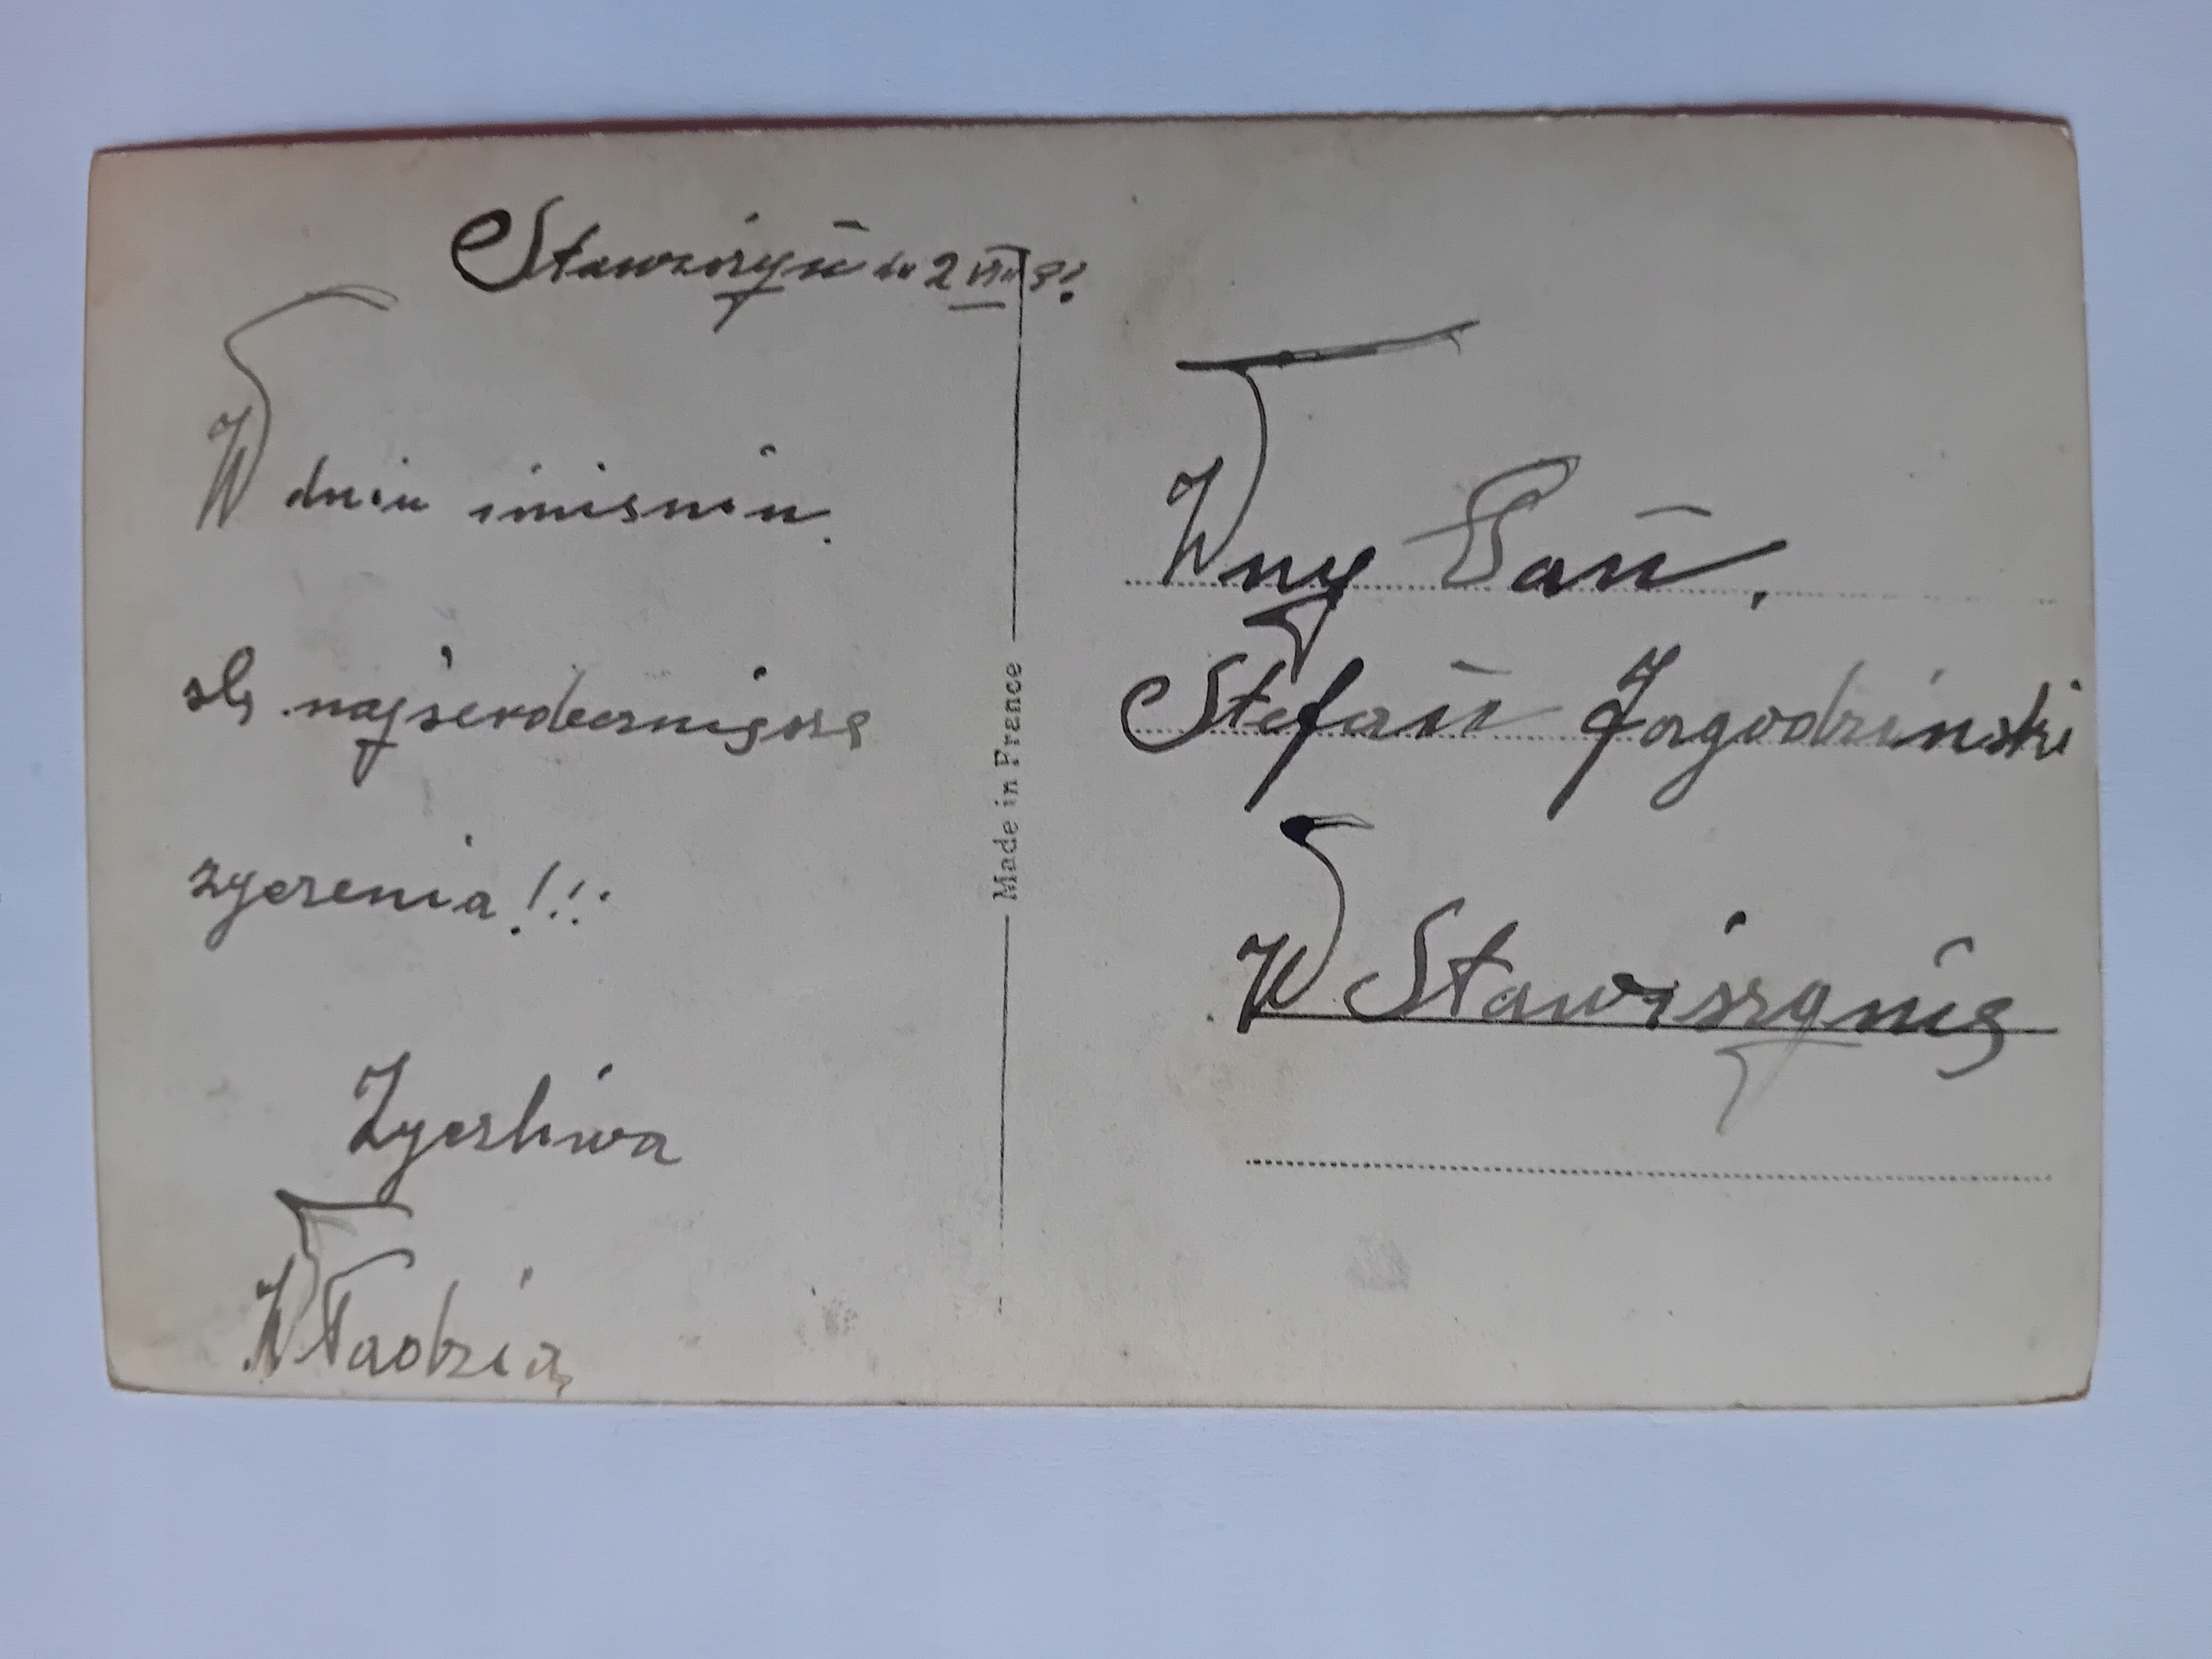 Stawiszyn dn 2 VIII 3?
W dniu imienin.
slę najserdeczniejsze
życzenia!!!
Życzliwa
Władzia
Made in France
Wny Pan,
Stefan Jagodzinski
W Stawiszynie